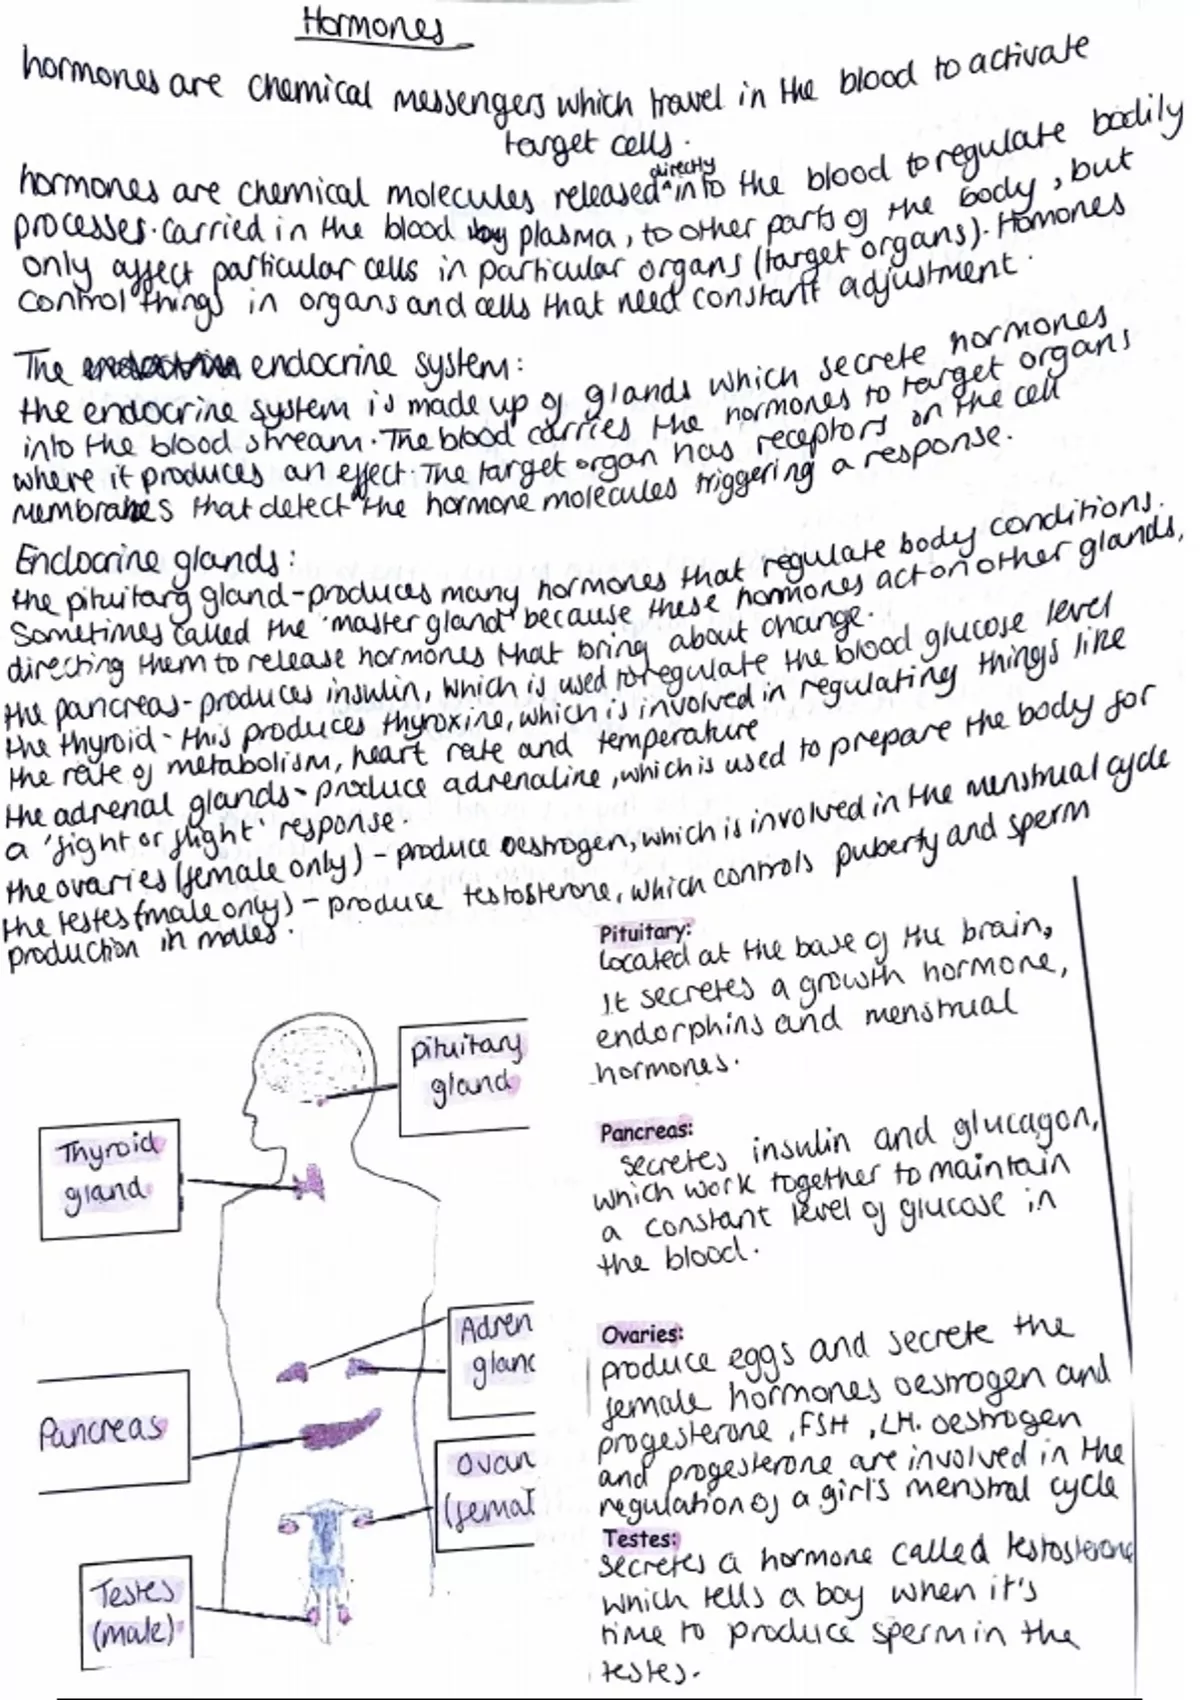 Hormones
hormones are chemical messengers which travel in the blood to activate
target cells.
hormones are chemical molecules released ^directly into the blood to regulate bodily
processes. carried in the blood by plasma, to other parts of the body, but
only affect particular cells in particular organs (target organs). Homones
control things in organs and cells that need constant adjustment.
The endocrine system:
the endocrine system is made up of glands which secrete hormones
into the blood stream. The blood carries the hormones to target organs
where it produces an effect. The target organ has receptors on the cell
membranes that detect the hormone molecules triggering a response.
Endocrine glands:
the pituitary gland - produces many hormones that regulate body conditions.
Sometimes called the 'master gland' because these hormones act on other glands,
directing them to release hormones that bring about change.
the pancreas - produces insulin, which is used to regulate the blood glucose level
the thyroid - this produces thyroxine, which is involved in regulating things like
the rate of metabolism, heart rate and temperature
the adrenal glands - produce adrenaline, which is used to prepare the body for
a 'fight or flight' response.
the ovaries (female only) - produce oestrogen, which is involved in the menstrual cycle
the testes (male only) - produce testosterone, which controls puberty and sperm
production in males.
Pituitary:
Located at the base of the brain,
It secretes a growth hormone,
endorphins and menstrual
hormones.
pituitary
gland
Thyroid
gland
Pancreas:
secretes insulin and glucagon,
which work together to maintain
a constant level of glucose in
the blood.
Adren
glanc
Pancreas
Ovan
(femal
Ovaries:
produce eggs and secrete the
female hormones oestrogen and
progesterone, FSH, LH. oestrogen
and progesterone are involved in the
regulation of a girl's menstral cycle
Testes
(male)
Testes:
secretes a hormone called testosterone
which tells a boy when it's
time to produce sperm in the
testes.